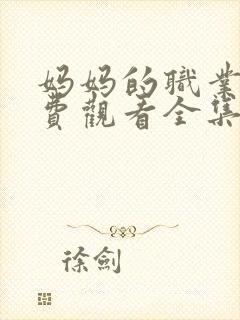 妈妈的職業
費觀看全集
徐劍